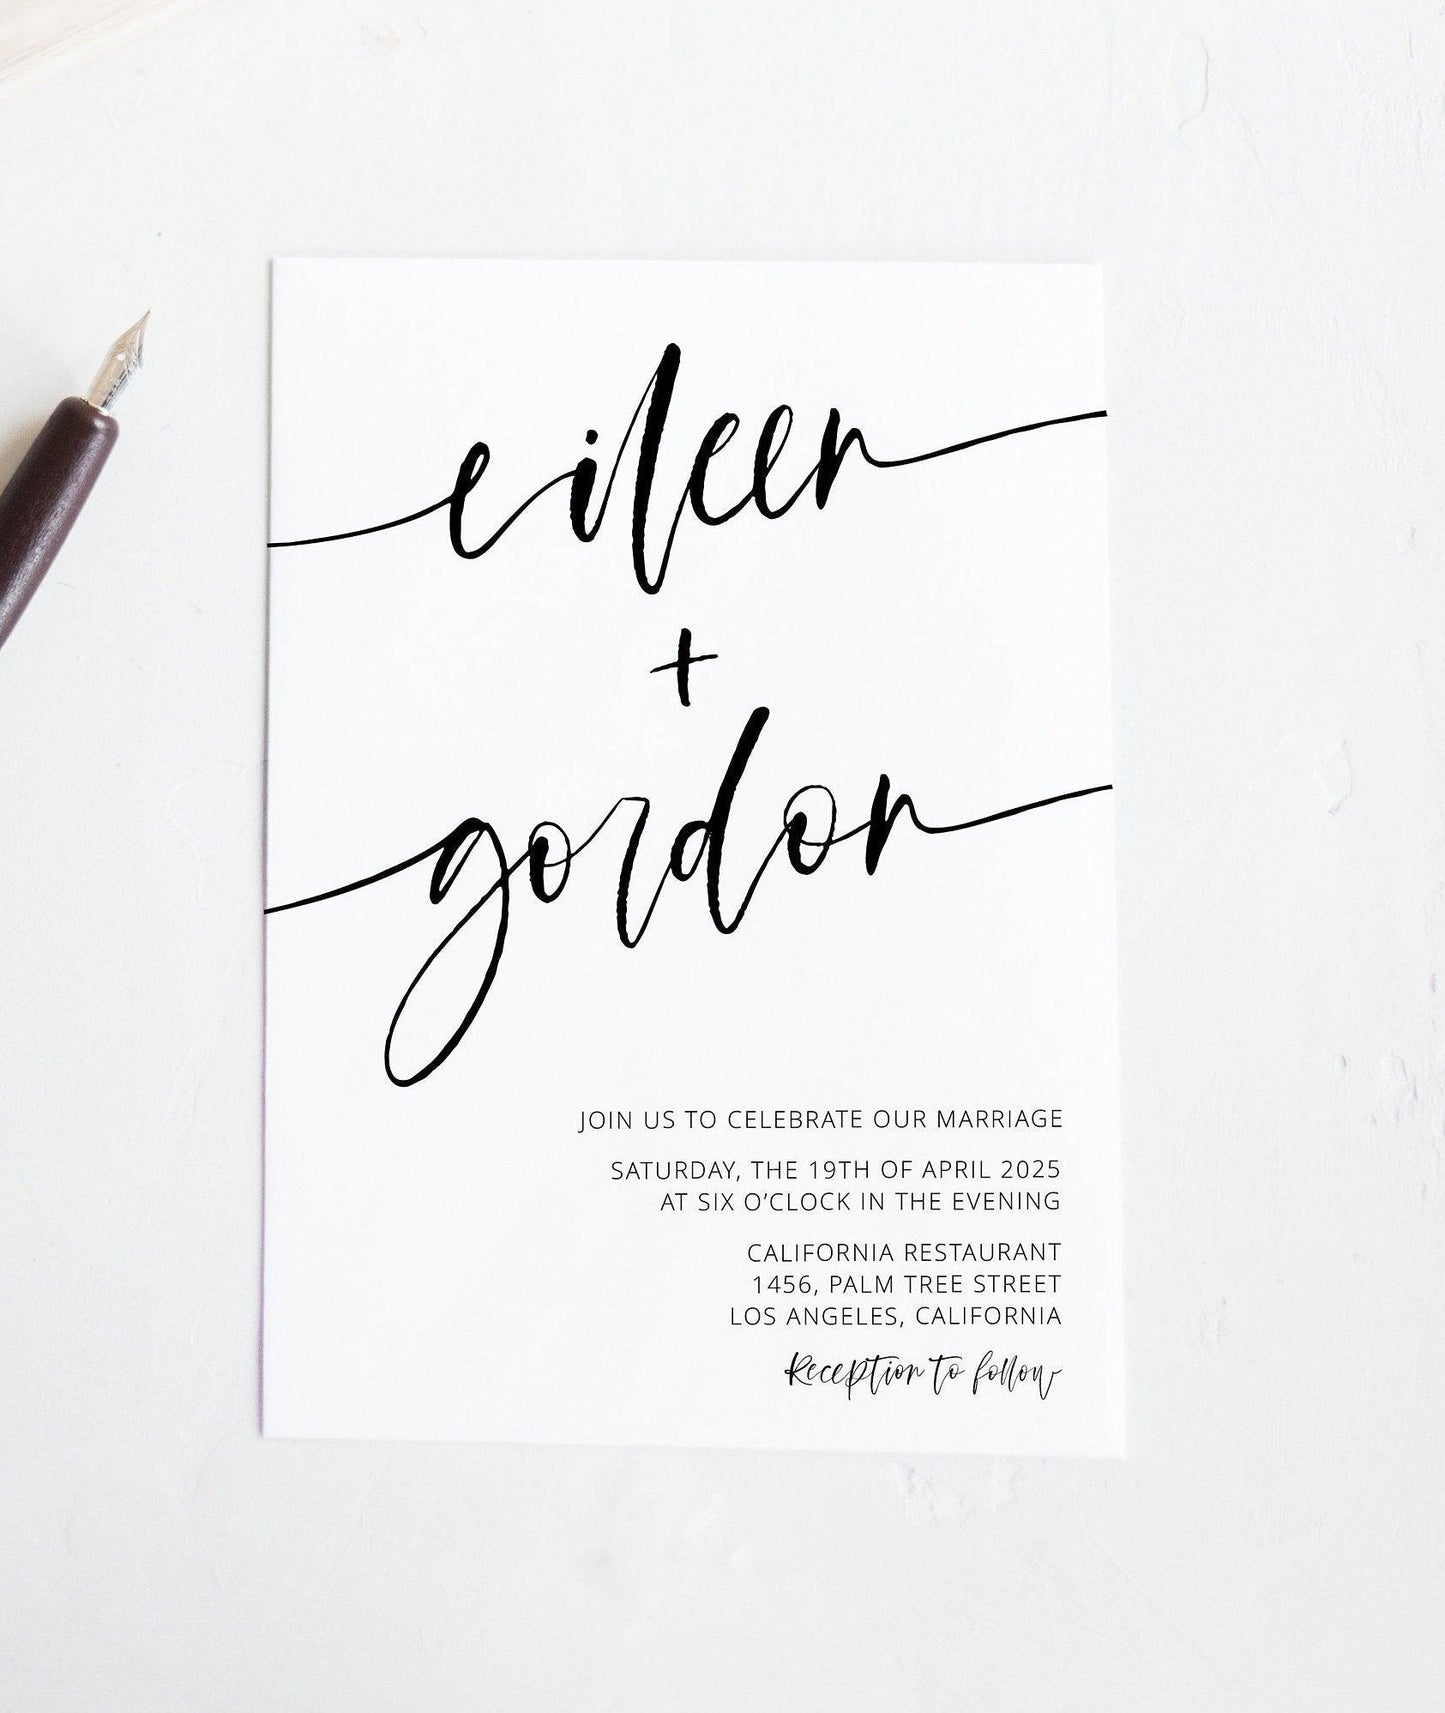 eileen
+
gordon
JOIN US TO CELEBRATE OUR MARRIAGE
SATURDAY, THE 19TH OF APRIL 2025
AT SIX O’CLOCK IN THE EVENING
CALIFORNIA RESTAURANT
1456, PALM TREE STREET
LOS ANGELES, CALIFORNIA
Reception to follow